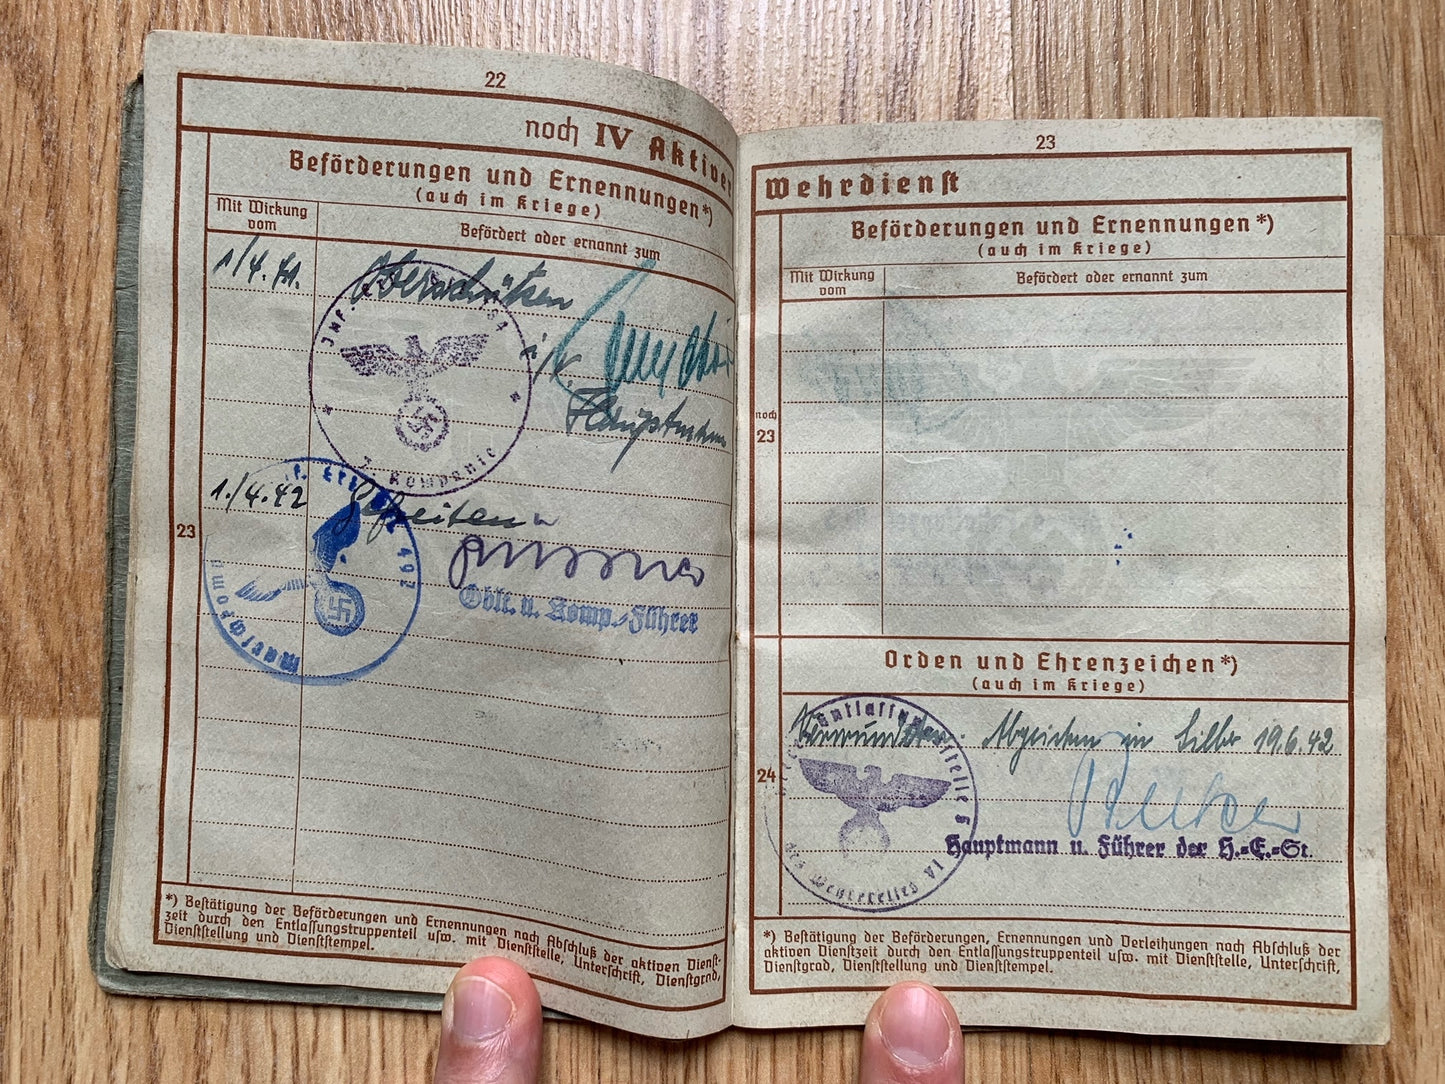 22
noch IV Aktiver
Beförderungen und Ernennungen*)
(auch im Kriege)
Mit Wirkung
vom
Befördert oder ernannt zum
1/4.41. Oberschützen
i/V.
Hauptmann
7. Kompanie
23
1./4.42 Gefreiten
492
Oblt. u. Komp.-Führer
*) Bestätigung der Beförderungen und Ernennungen nach Abschluß der aktiven Dienst-
zeit durch den Entlassungstruppenteil usw. mit Dienststelle, Unterschrift, Dienstgrad,
Dienststellung und Dienststempel.
23
Wehrdienst
Beförderungen und Ernennungen*)
(auch im Kriege)
Mit Wirkung
vom
Befördert oder ernannt zum
noch
23
Orden und Ehrenzeichen*)
(auch im Kriege)
24
Verwundeten Abzeichen in Silber 19.6.42
Hauptmann u. Führer der H.-E.-St.
*) Bestätigung der Beförderungen, Ernennungen und Verleihungen nach Abschluß der
aktiven Dienstzeit durch den Entlassungstruppenteil usw. mit Dienststelle, Unterschrift,
Dienstgrad, Dienststellung und Dienststempel.